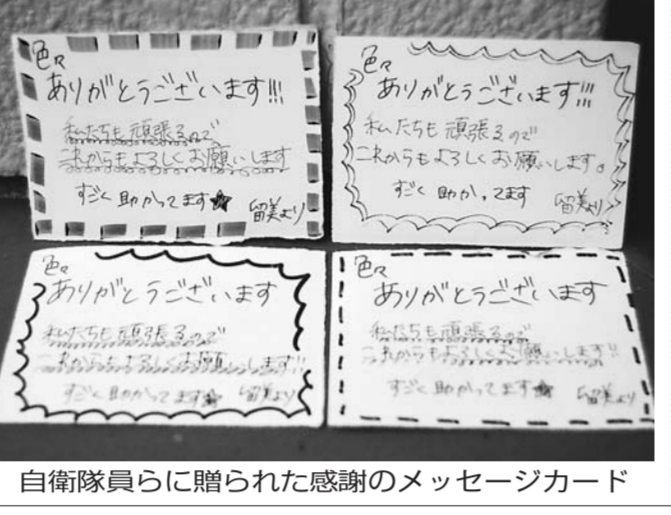 色々
ありがとうございます!!!
私たちも頑張るので
これからもよろしくお願いします
すごく助かってます★
留美より
色々
ありがとうございます!!!
私たちも頑張るので
これからもよろしくお願いします。
すごく助かってます
留美より
色々
ありがとうございます
私たちも頑張るので
これからもよろしくお願いします!!
すごく助かってます★
留美より
色々
ありがとうございます
私たちも頑張るので
これからもよろしくお願いします!!
すごく助かってます★
留美より
自衛隊員らに贈られた感謝のメッセージカード